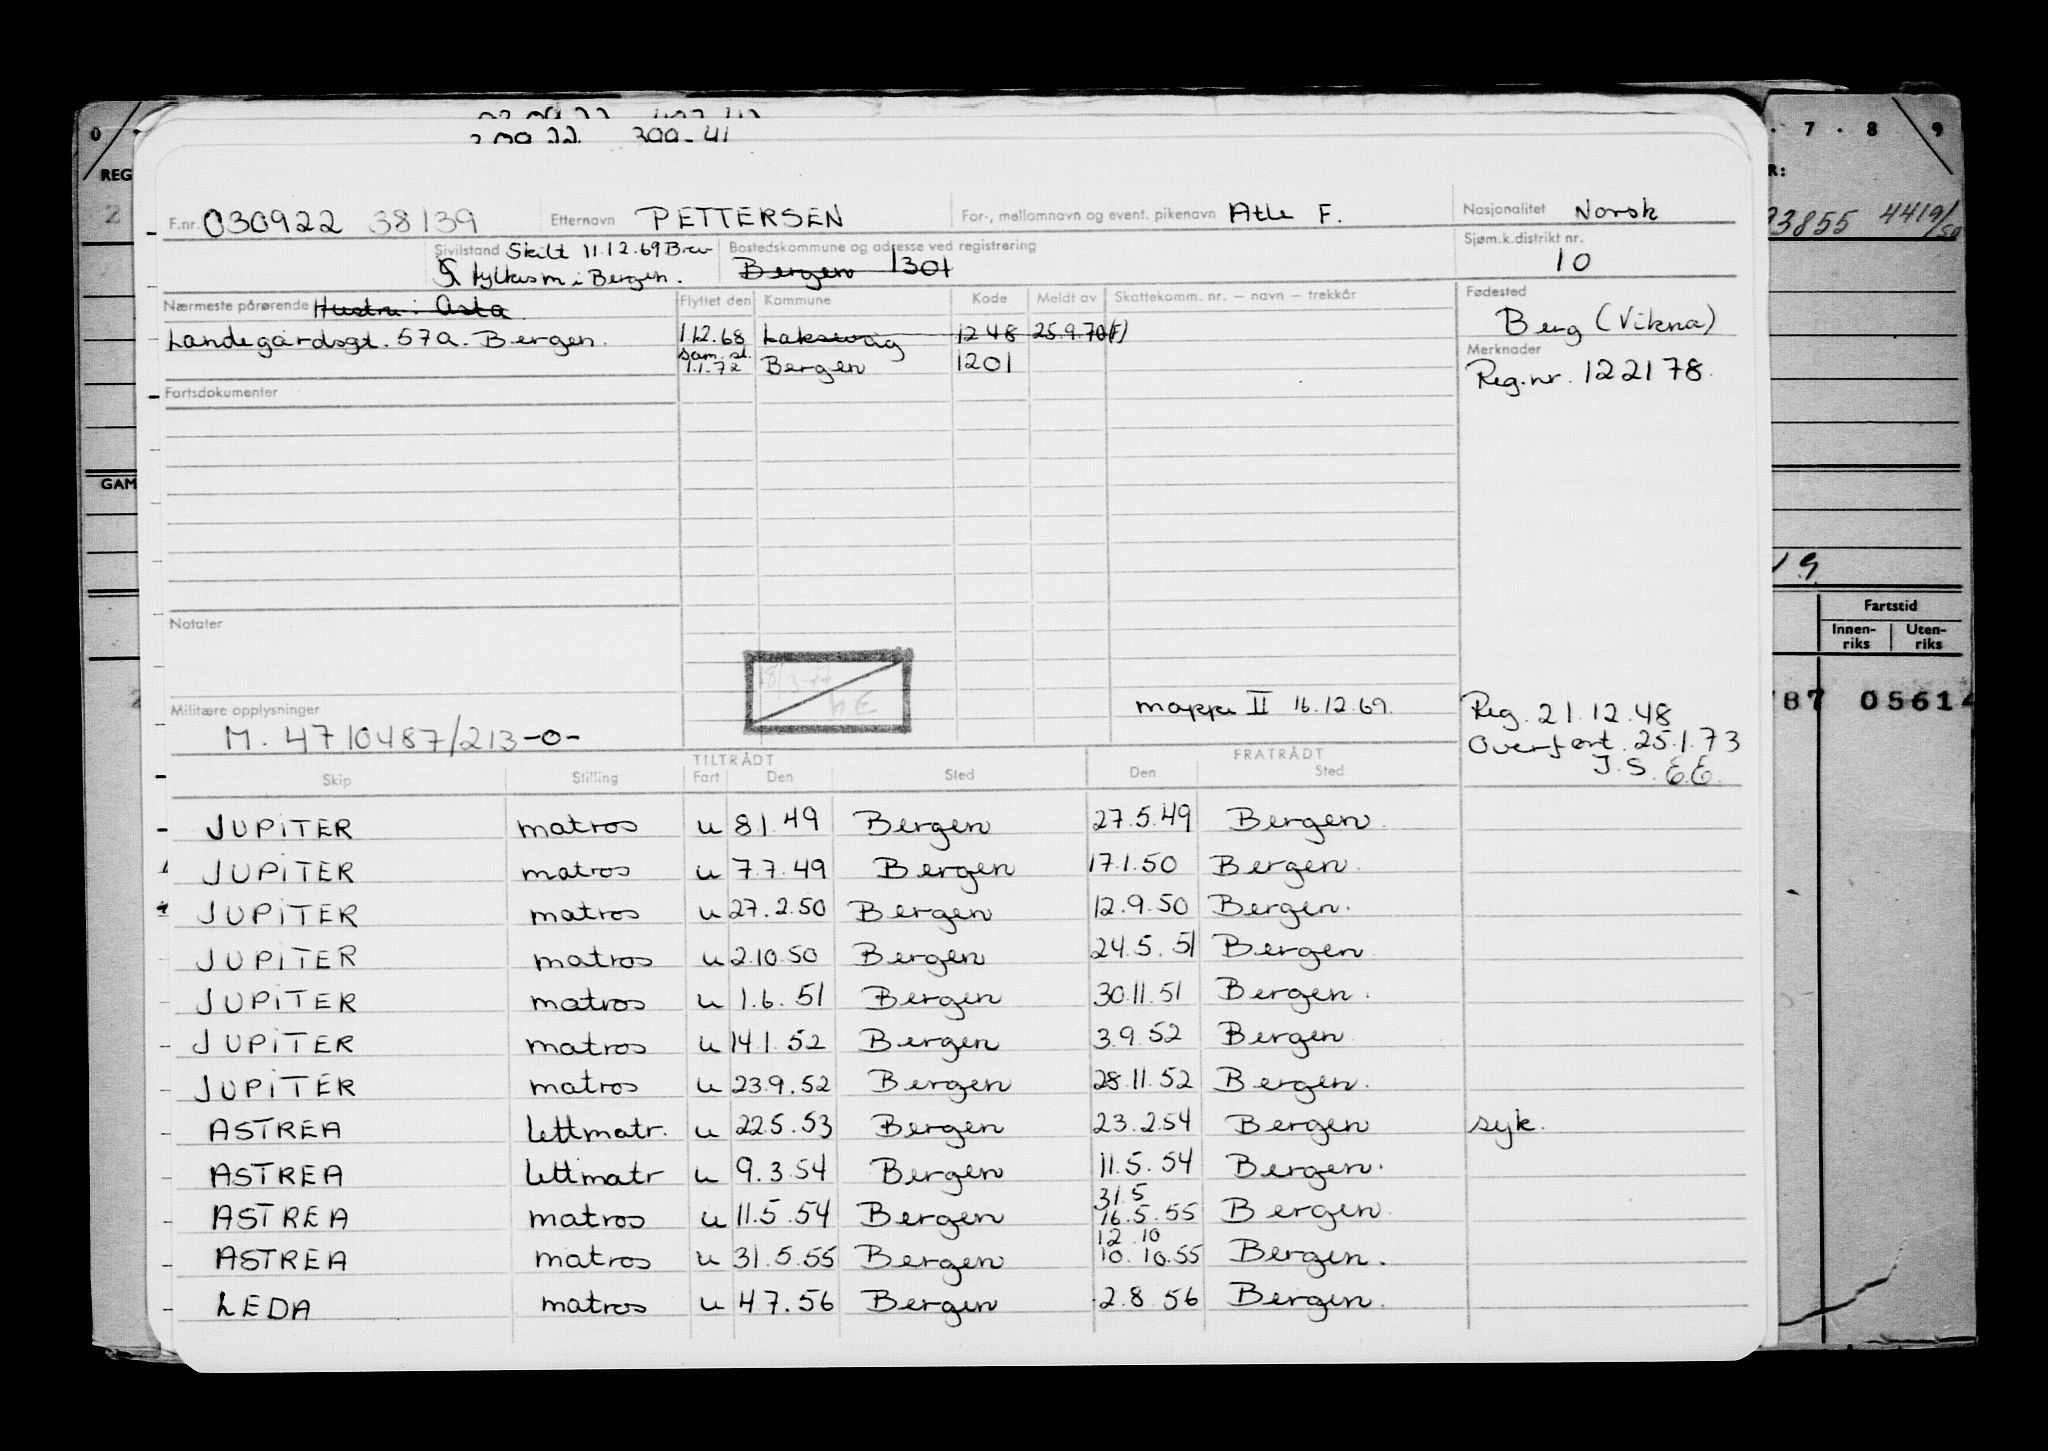 0
7 . 8 9
REG
R:
2
3855 4419/50
F.nr. 030922 38139 Etternavn PETTERSEN For-, mellomnavn og event. pikenavn Atle F. Nasjonalitet Norsk
Sivilstand Skilt 11.12.69 Brev Bostedskommune og adresse ved registrering Sjøm.k.distrikt nr.
fylkesm i Bergen. Bergen 1301 10
Nærmeste pårørende Hustru: Asta Flyttet den Kommune Kode Meldt av Skattekomm. nr. – navn – trekkår Fødested
Landegårdsgt. 57a. Bergen. 1.12.68 Laksevåg 1248 25.9.70(F) Berg (Vikna)
Sam. st. Merknader
1.1.72 Bergen 1201 Reg.nr. 122178.
Fartsdokumenter
GAM
Fartstid
Innen-riks Uten-riks
Notater
Militære opplysninger mappe II 16.12.69. Reg. 21.12.48
M. 4710487/213-0- Overført. 25.1.73
J.S. E.E.
87 05614
TILTRÅDT FRATRÅDT
Skip Stilling Fart Den Sted Den Sted
JUPITER matros u 8.1.49 Bergen 27.5.49 Bergen.
JUPITER matros u 7.7.49 Bergen 17.1.50 Bergen.
JUPITER matros u 27.2.50 Bergen 12.9.50 Bergen.
JUPITER matros u 2.10.50 Bergen 24.5.51 Bergen.
JUPITER matros u 1.6.51 Bergen 30.11.51 Bergen.
JUPITER matros u 14.1.52 Bergen 3.9.52 Bergen
JUPITER matros u 23.9.52 Bergen 28.11.52 Bergen.
ASTREA lettmatr. u 22.5.53 Bergen 23.2.54 Bergen syk.
ASTREA lettmatr u 9.3.54 Bergen 11.5.54 Bergen.
31.5
ASTREA matros u 11.5.54 Bergen 16.5.55 Bergen.
12.10
ASTREA matros u 31.5.55 Bergen 10.10.55 Bergen.
LEDA matros u 4.7.56 Bergen 2.8.56 Bergen.